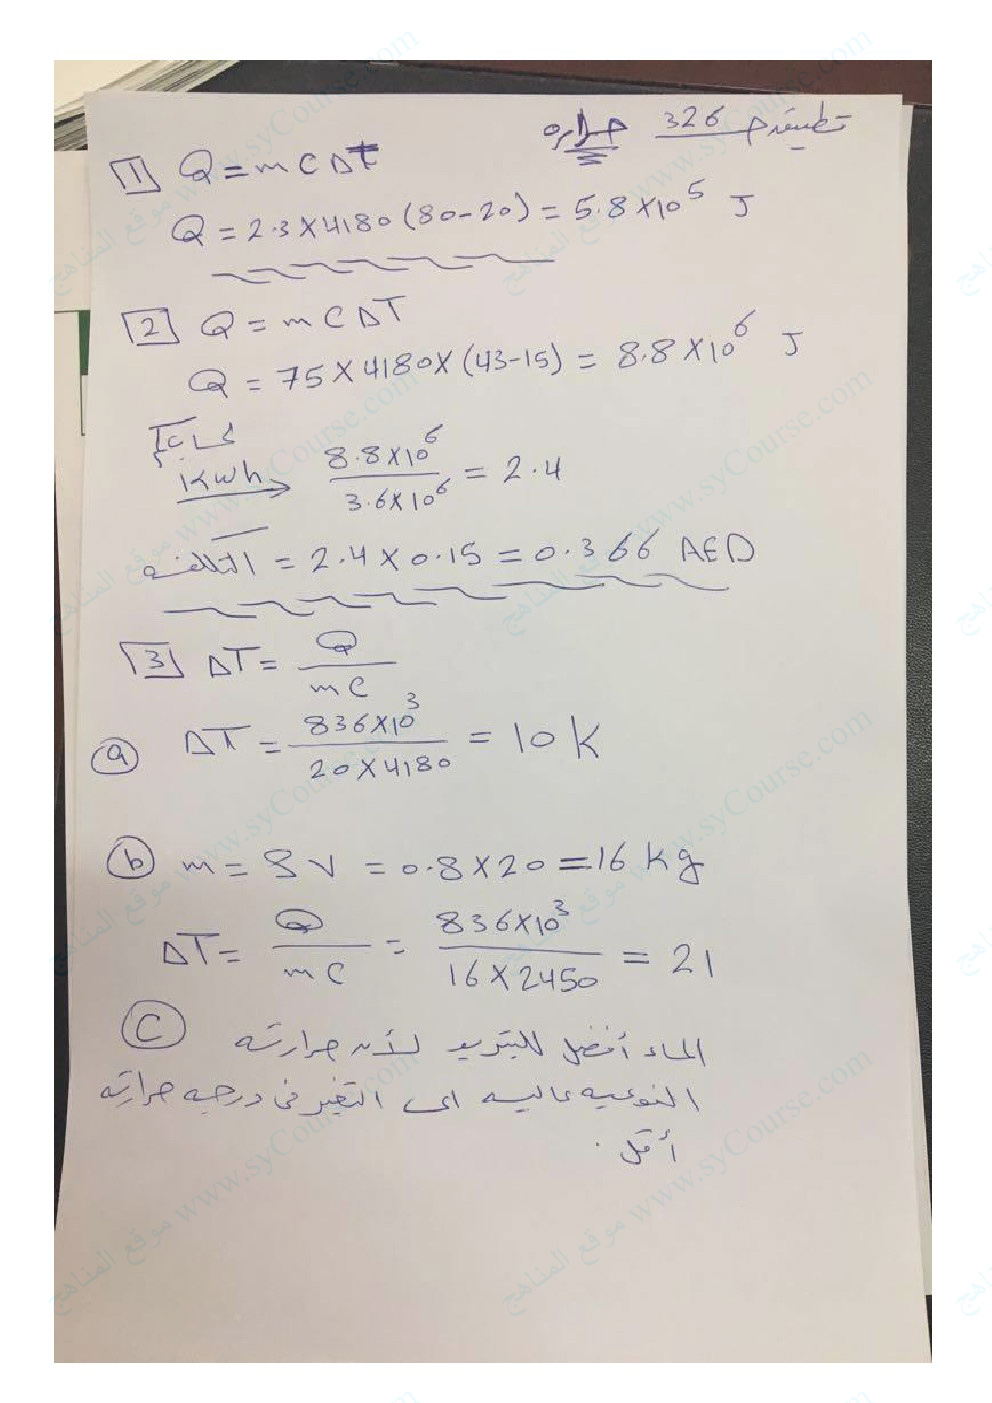 تطبيق ص 326 حراره
1 Q = m C ΔT
Q = 2.3 × 4180 (80-20) = 5.8 × 10⁵ J
2 Q = m C ΔT
Q = 75 × 4180 × (43-15) = 8.8 × 10⁶ J
لحساب
Kwh → 8.8×10⁶ / 3.6×10⁶ = 2.4
التكلفه = 2.4 × 0.15 = 0.366 AED
3 ΔT = Q / mC
a ΔT = 836×10³ / 20×4180 = 10 K
b m = ρV = 0.8×20 = 16 kg
ΔT = Q / mC = 836×10³ / 16×2450 = 21
C
الماء أفضل للتبريد لأن حرارته
النوعيه عاليه اى التغير فى درجه حرارته
أقل .
موقع المناهج www.syCourse.com